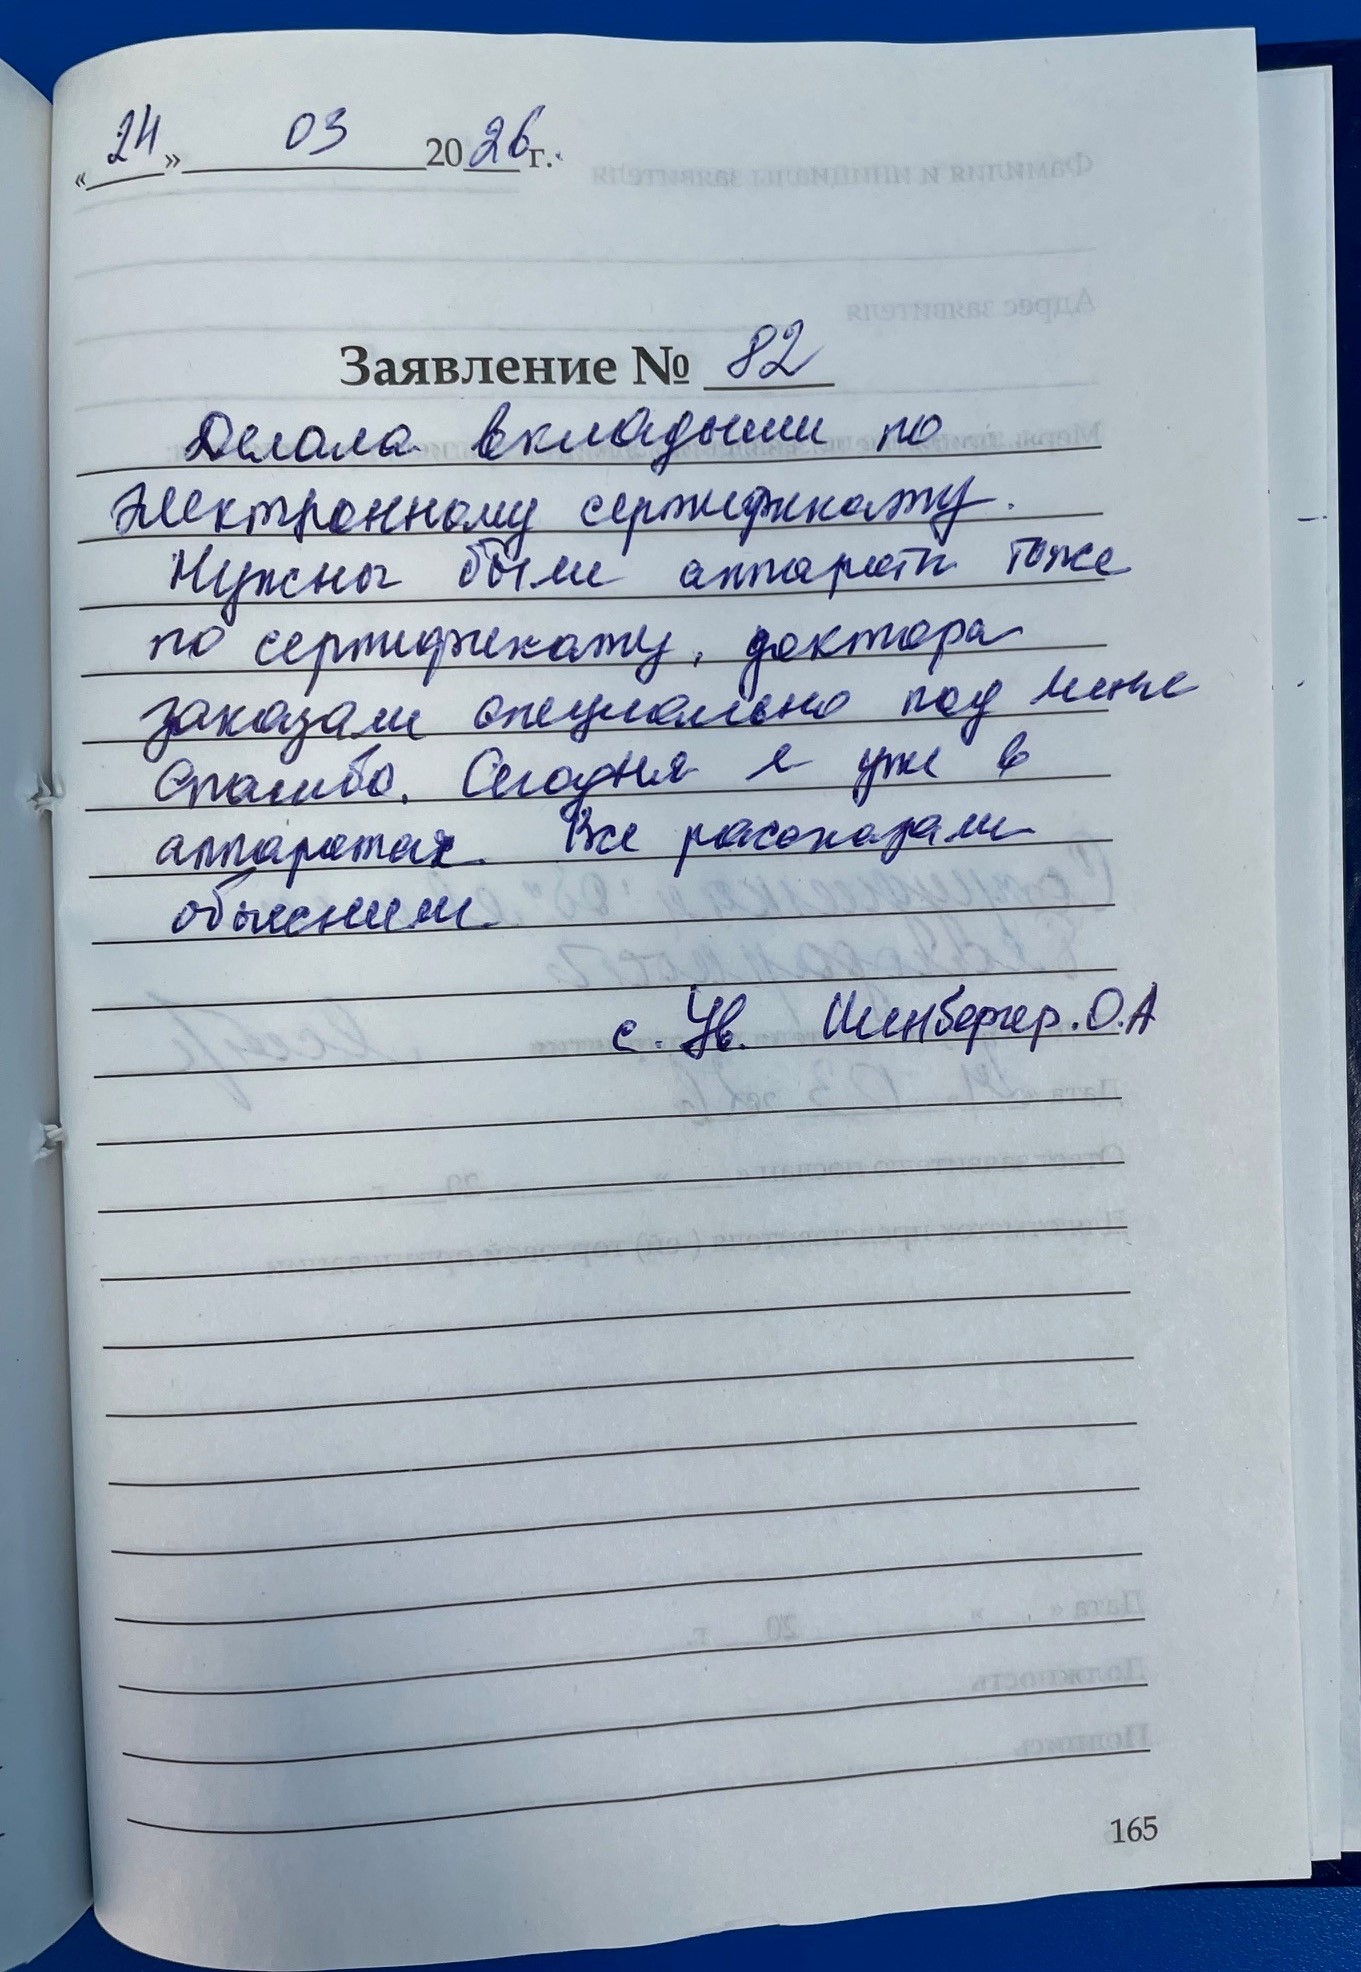 «24» 03 2026 г.
Заявление № 82
Делала вкладыши по
электронному сертификату.
Нужны были аппараты тоже
по сертификату, доктора
заказали специально под меня
Спасибо. Сегодня я уже в
аппаратах. Все рассказали
объяснили
с. Ув. Шенбергер. О.А
165